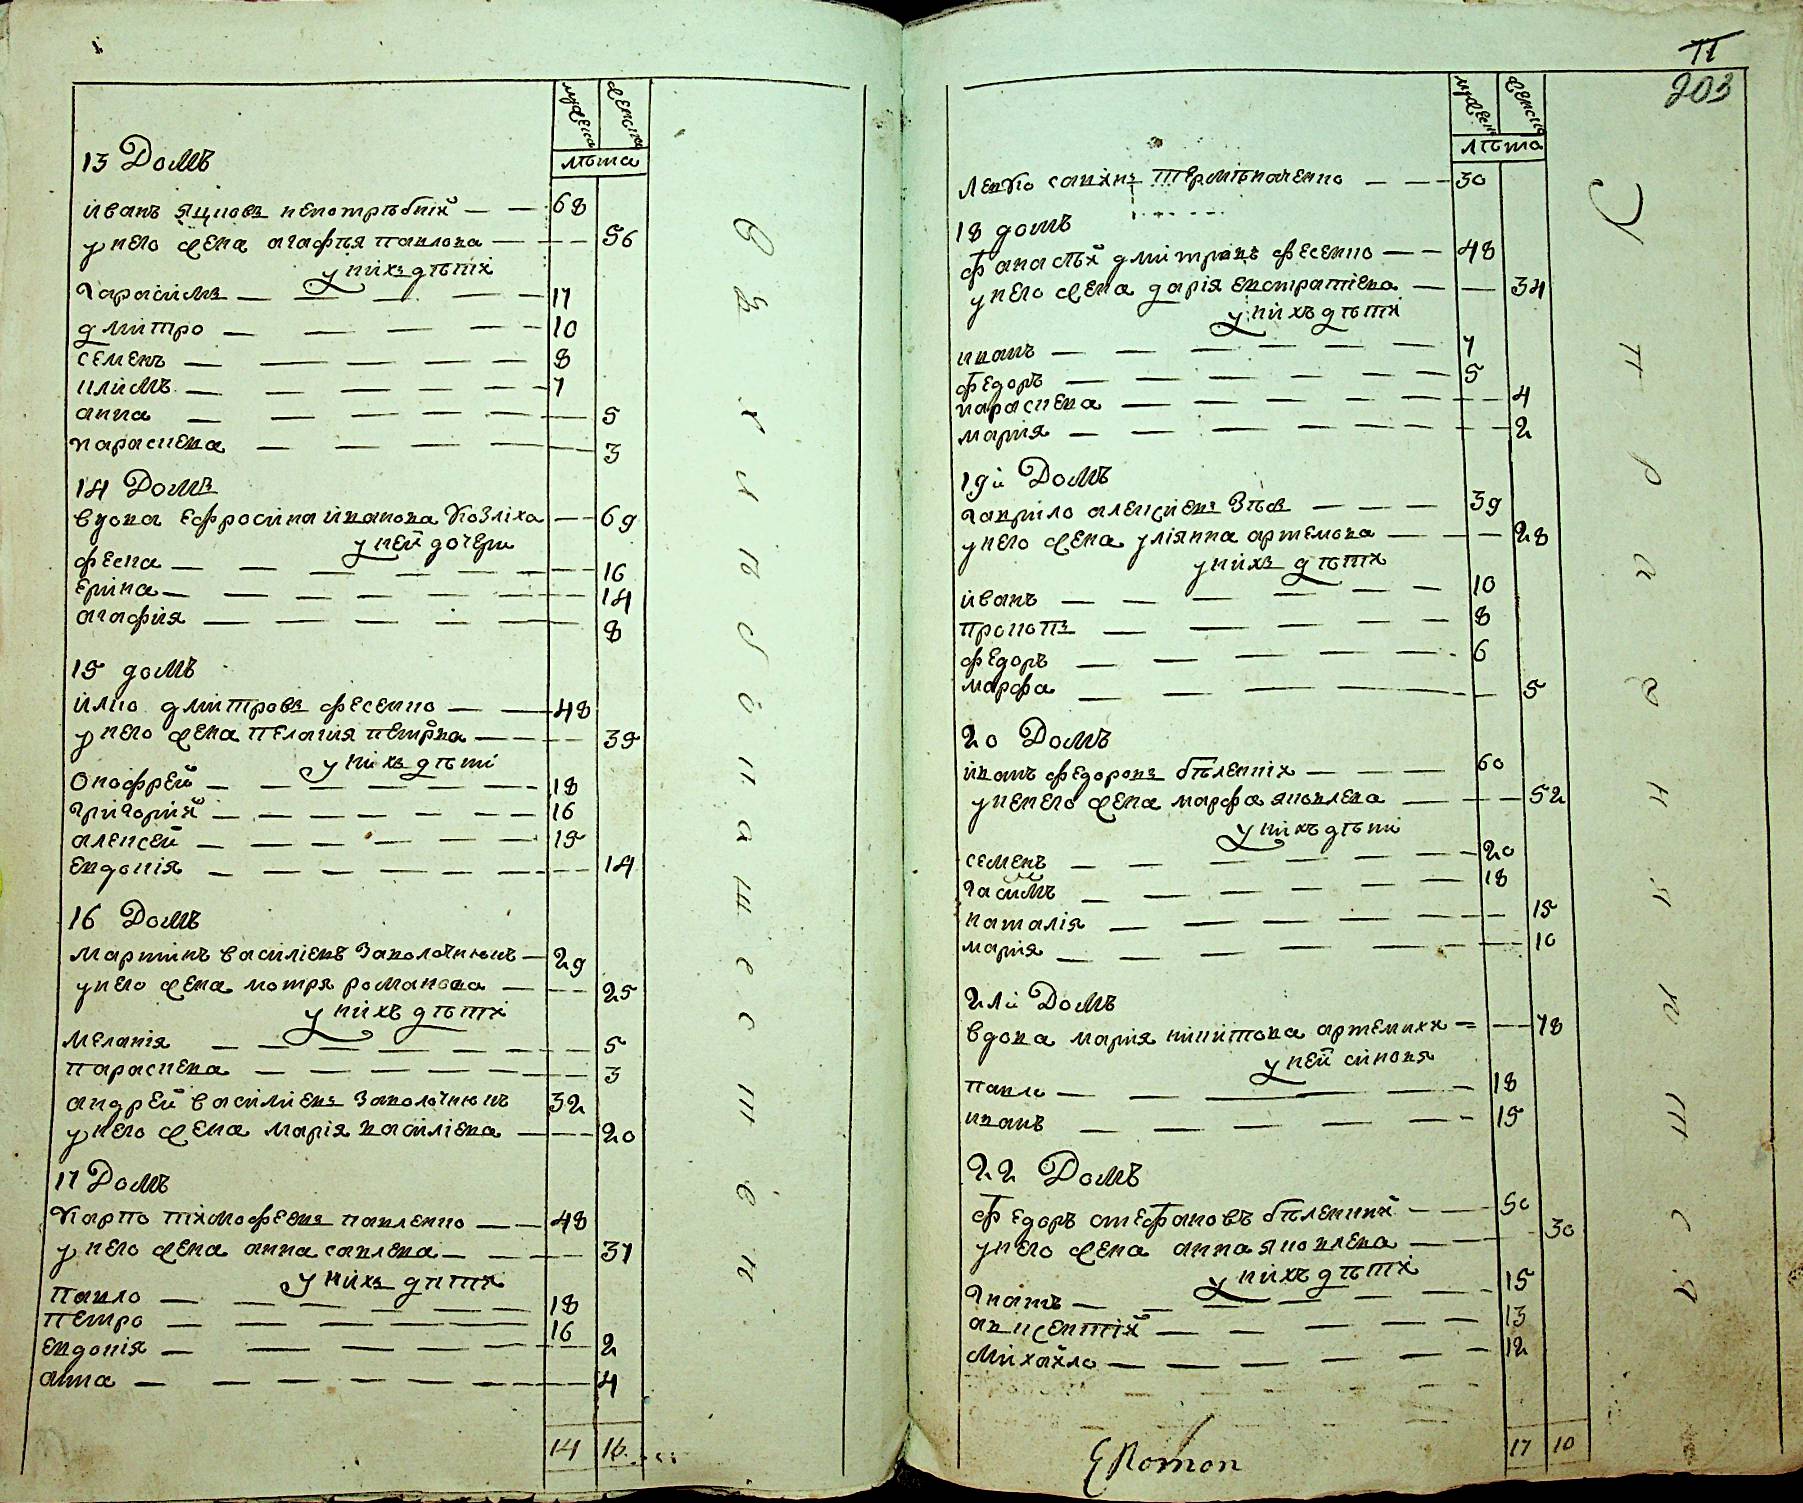 мужеска
женска
лѣта
13 Домъ
иванъ яцковъ непотрѣбнiй 68
у него жена агафья павлова 56
у нихъ дѣти
гарасимъ 17
дмитро 10
семенъ 8
климъ 7
анна 5
параскева 3
14 Домъ
вдова ефросина иванова козлiха 69
у ней дочери
феска 16
ерина 14
агафия 8
15 домъ
илко дмитровъ фесенко 48
у него жена пелагия петрва 39
у нихъ дѣти
онофрей 18
григорий 16
алексей 15
евдокiя 14
16 Домъ
мартинъ василiевъ заволочнюкъ 29
у него жена мотря романова 25
у нихъ дѣти
меланiя 5
параскева 3
андрей василиевъ заволочнюкъ 32
у него жена марiя василiева 20
17 Домъ
карпо тiмофеевъ павленко 48
у него жена анна савлева 37
у нихъ дѣти
павло 18
петро 16
евдокiя 2
анна 4
14 16
П
203
мужеска
женска
лѣта
левко савинъ 30
18 домъ
фанасѣй дмитривъ фесенко 48
у него жена дарiя евстратiева 34
у нихъ дѣти
иванъ 7
федоръ 5
параскева 4
мария 2
19й Домъ
гаврило алексiевъ 39
у него жена улiянна артемова 28
у нихъ дѣти
иванъ 10
прокопъ 8
федоръ 6
марфа 5
20 Домъ
иванъ федоровъ бѣленкiх 60
у него жена марфа яковлева 52
у нихъ дѣти
семенъ 20
18
наталiя 15
мария 10
21й Домъ
вдова мария никитова артемиха 78
у ней синовя
павло 18
иванъ 15
22 Домъ
федоръ стефановъ бѣленкий 50
у него жена анна яковлева 30
у нихъ дѣти
гнатъ 15
авксентiй 13
михайло 12
17 10